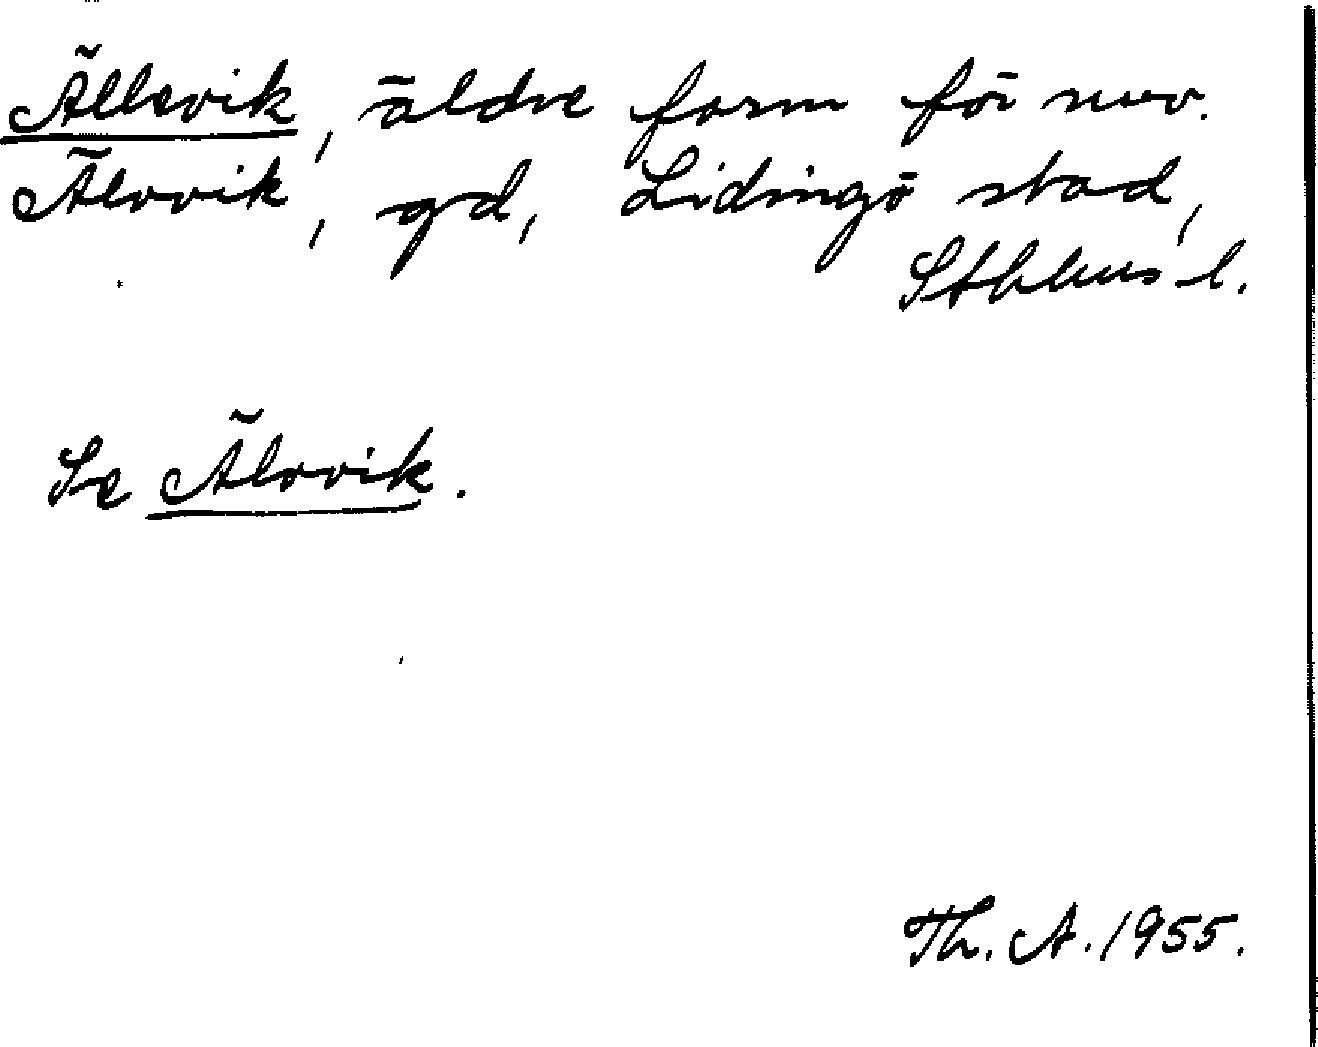 Ällsvik, äldre form för nuv.
Älvvik, gd, Lidingö stad,
Sthlms l.
Se Älvvik.
Th. A. 1955.